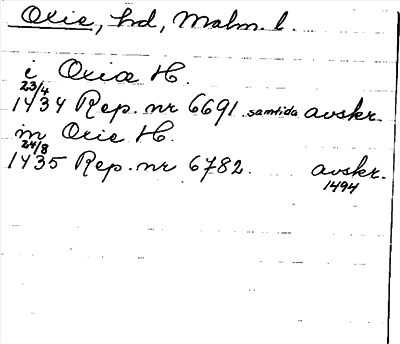 Oxie, hd, Malm. l.
i Oxiæ H.
23/4
1434 Rep. nr 6691 samtida avskr.
in Oxie H.
24/8
1435 Rep. nr 6782. avskr.
1494